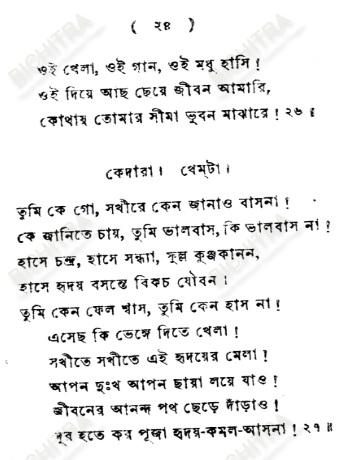 ( ২৪ )
ওই খেলা, ওই গান, ওই মধু হাসি !
ওই দিয়ে আছ ছেয়ে জীবন আমারি,
কোথায় তোমার সীমা ভুবন মাঝারে ! ২৬ ॥
কেদারা । খেম্‌টা ।
তুমি কে গো, সখীরে কেন জানাও বাসনা !
কে জানিতে চায়, তুমি ভালবাস, কি ভালবাস না !
হাসে চন্দ্র, হাসে সন্ধ্যা, ফুল্ল কুঞ্জকানন,
হাসে হৃদয় বসন্তে বিকচ যৌবন ।
তুমি কেন ফেল শ্বাস, তুমি কেন হাস না !
এসেছ কি ভেঙ্গে দিতে খেলা !
সখীতে সখীতে এই হৃদয়ের মেলা !
আপন দুঃখ আপন ছায়া লয়ে যাও !
জীবনের আনন্দ পথ ছেড়ে দাঁড়াও !
দূর হতে কর পূজা হৃদয়-কমল-আসনা ! ২৭ ॥
BICHITRA